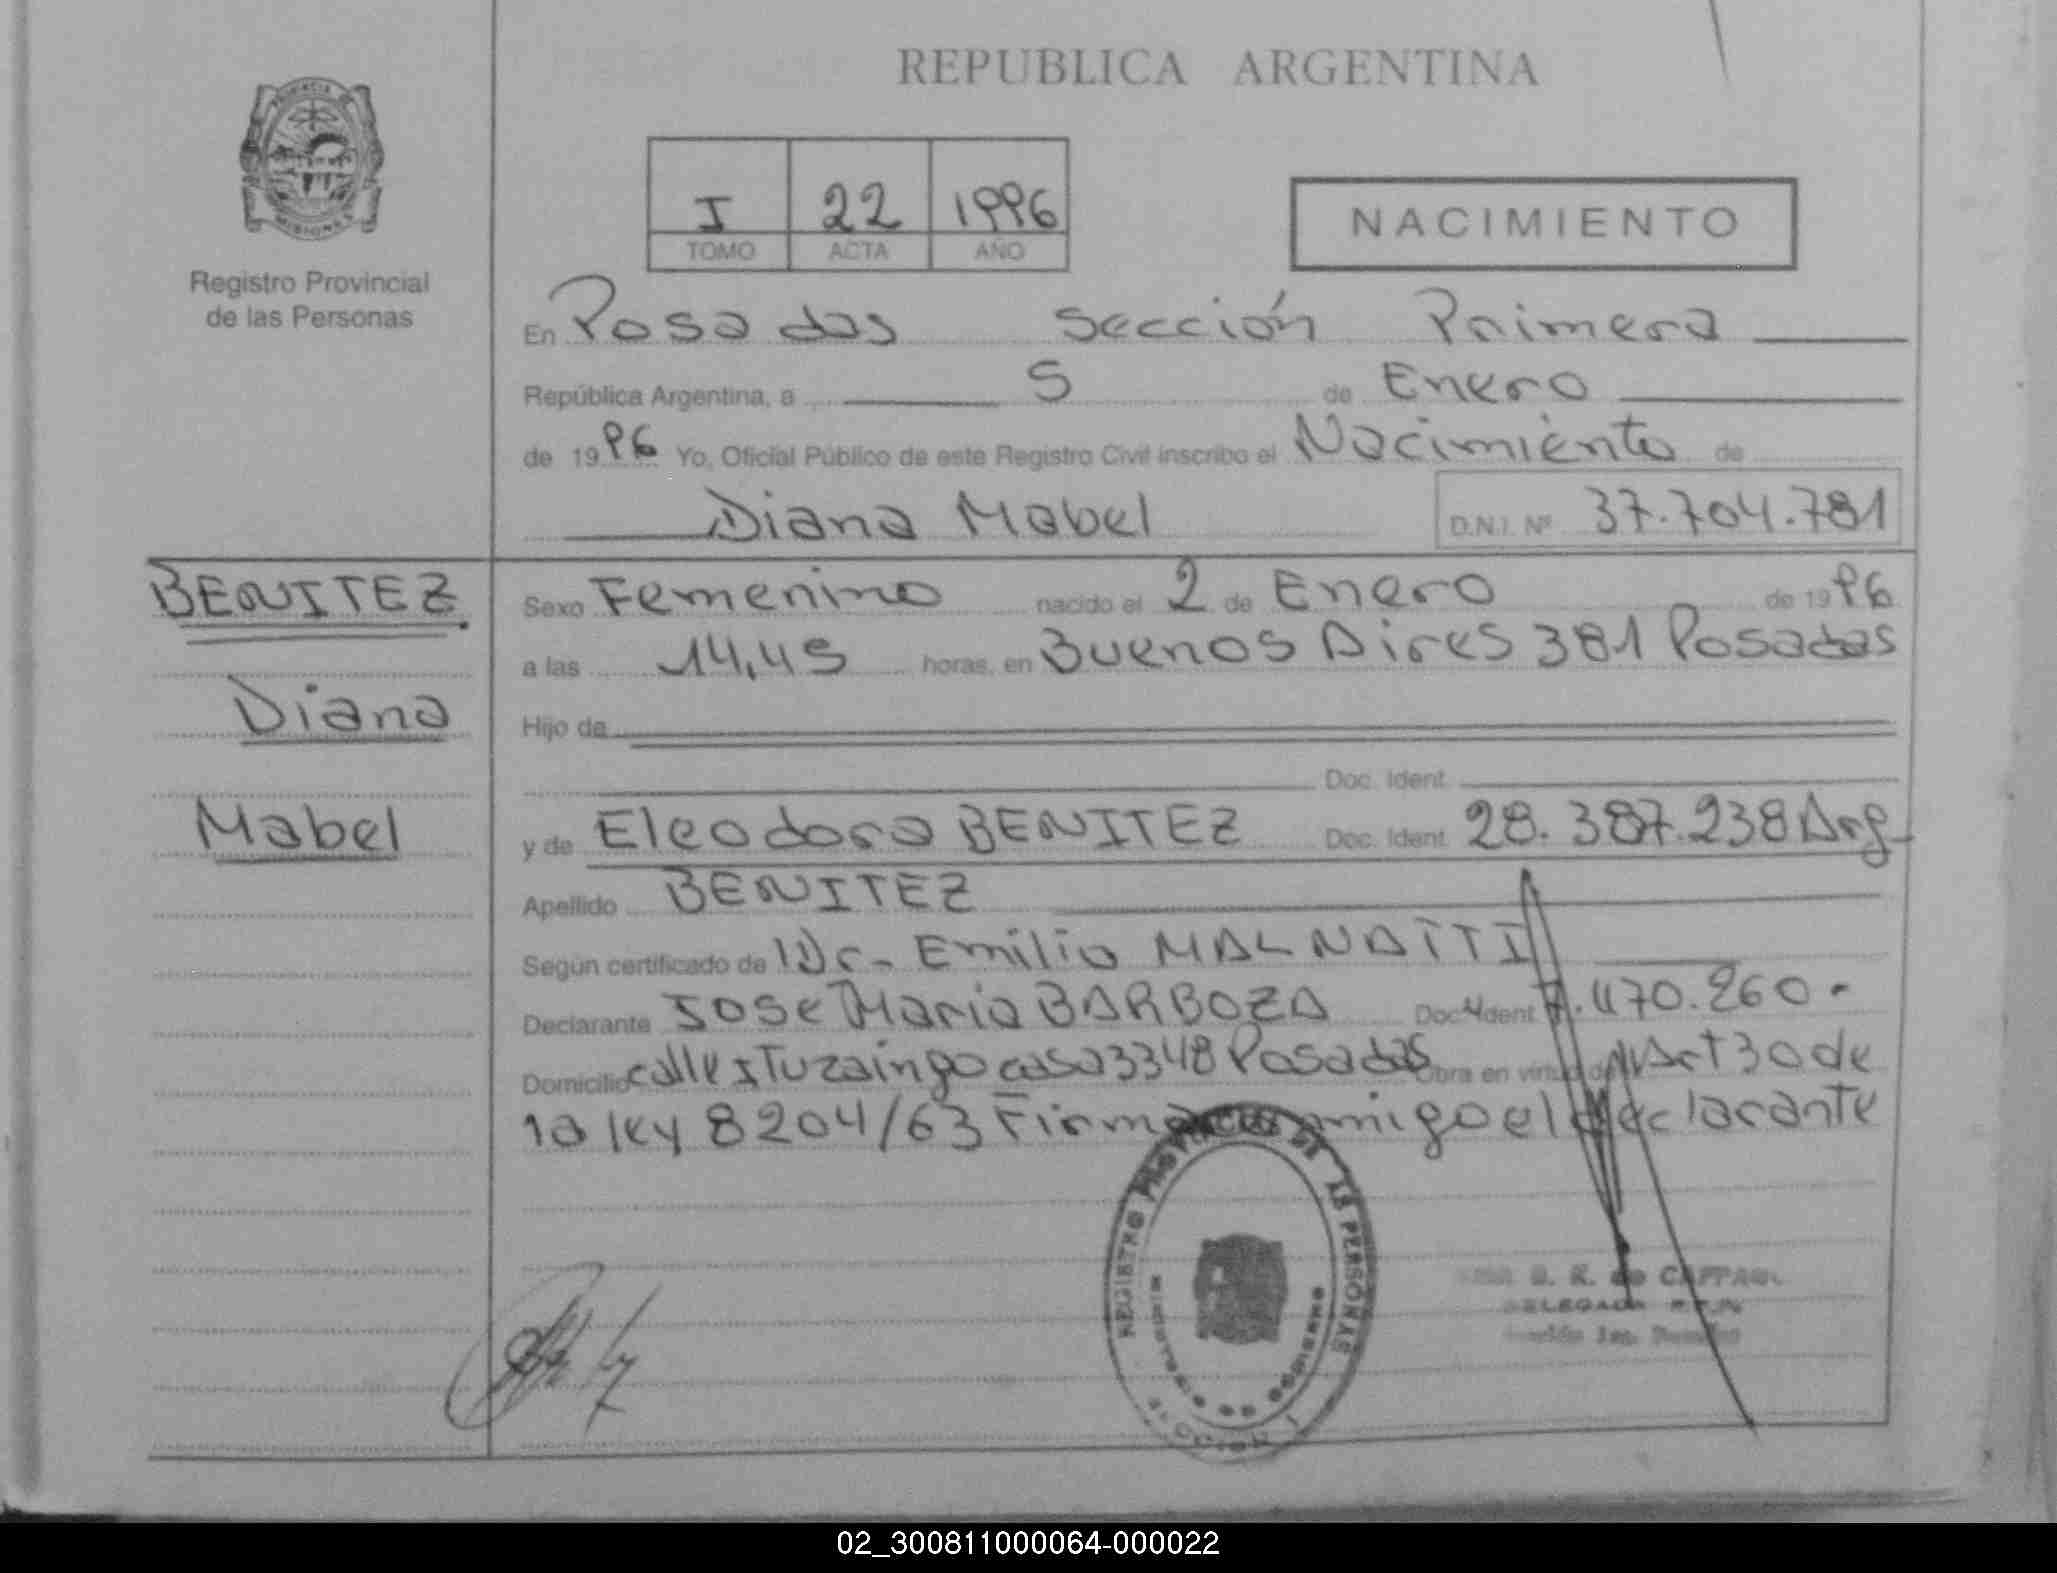 REPUBLICA ARGENTINA
I 22 1996
TOMO ACTA AÑO
NACIMIENTO
Registro Provincial
de las Personas
En Posadas Sección Primera
República Argentina, a 5 de Enero
de 1996 Yo, Oficial Público de este Registro Civil inscribo el Nacimiento de
Diana Mabel D.N.I. Nº 37.704.781
BENITEZ
Diana
Mabel
Sexo Femenino nacido el 2 de Enero de 1996
a las 14,45 horas, en Buenos Aires 381 Posadas
Hijo de
Doc. Ident.
y de Eleodora BENITEZ Doc. Ident. 28.387.238 Arg
Apellido BENITEZ
Según certificado de Dr. Emilio MALNATTI
Declarante Jose Maria BARBOZA Doc. Ident. 7.470.260.-
Domicilio calle Ituzaingo casa 3348 Posadas Obra en virtud del Art 30 de
la ley 8204/63 Firma amigo el declarante
REGISTRO PROVINCIAL DE LAS PERSONAS
MINISTERIO DE GOBIERNO
SECCION I
DELEGADA
02_300811000064-000022